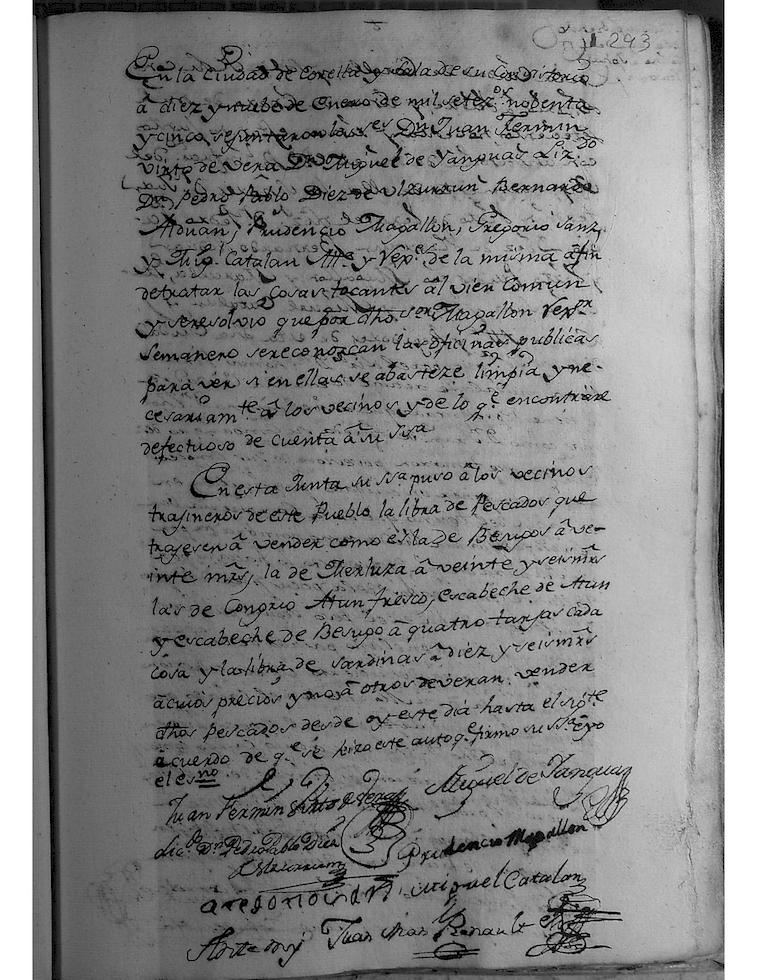 293
En la Ciudad de Corella y Sala de su Consistorio
â diez y nuebe de Enero de mil setezos nobenta
y cinco se juntaron los Sres Dn Juan Fermin
Virto de Vera Dn Miguel de Yanguas Lizdo
Dn Pedro Pablo Diez de Ulzurrun Bernardo
Aduan, Prudencio Magallon, Gregorio Sanz,
y Migl Catalan Alle y Rexes de la misma âfin
de tratar las Cosas tocantes âl vien Comun
y se resolvio que por dho Sor Magallon Rexor
Semanero se reconozcan las oficinas publicas
para ver si en ellas se abasteze limpia, y ne-
cesariamte â los vecinos y de lo qe encontrare
defectuoso de cuenta â su Ssa
En esta Junta su Ssa puso â los vecinos
trajineros de este Pueblo la libra de Pescados que
trajesen â vender como es la de Besugos â ve-
inte mrs, la de Merluza â veinte y seis mrs
las de Congrio Atun fresco, escabeche de Atun
y escabeche de Besugo â quatro tarjas cada
cosa y la libra de sardinas â diez y seis mrs
â cuios precios, y no â otros deveran vender
dhos Pescados desde oy este dia hasta el sigte
acuerdo de qe se hizo este auto qe firmo su Ssa e yo
el esno
Juan Fermin Virto de Vera
Miguel de Yanguas
Licdo Dn Pedro Pablo Diez
de Ulzurrun
Prudencio Magallon
Miguel Catalan
Ante mi Juan Renault